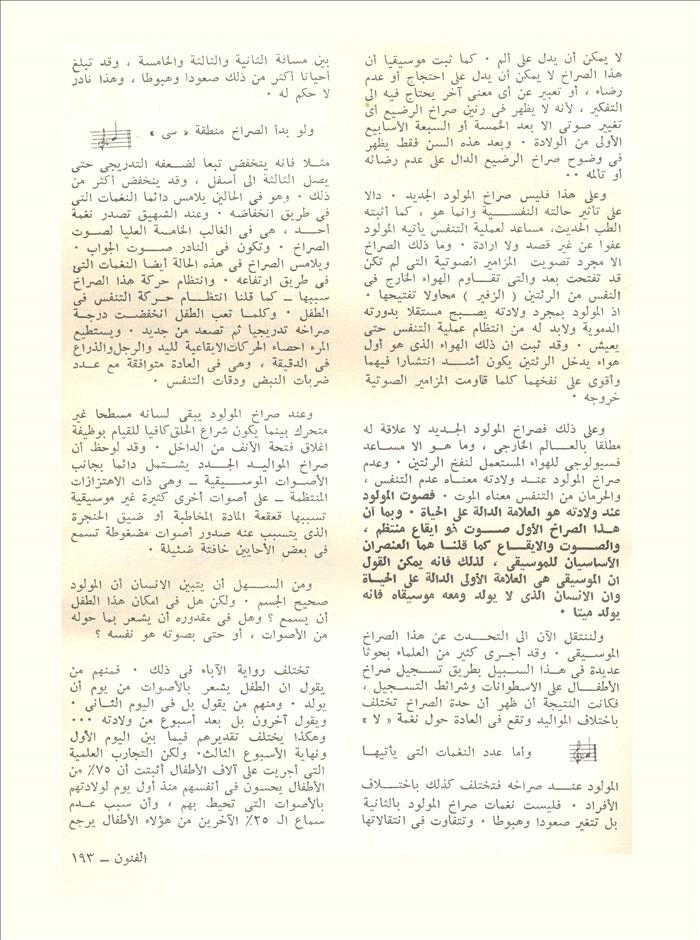 لا يمكن أن يدل على ألم ٠ كما ثبت موسيقيا أن
هذا الصراخ لا يمكن أن يدل على احتجاج أو عدم
رضاء ، أو تعبير عن أى معنى آخر يحتاج فيه الى
التفكير ، لأنه لا يظهر فى رنين صراخ الرضيع أى
تغيير صوتى الا بعد الخمسة أو السبعة الأسابيع
الأولى من الولادة ٠ وبعد هذه السن فقط يظهر
فى وضوح صراخ الرضيع الدال على عدم رضائه
أو تألمه ٠٠
وعلى هذا فليس صراخ المولود الجديد ٠ دالا
على تأثير حالته النفســـية وانما هو ، كما أثبته
الطب الحديث، مساعد لعملية التنفس يأتيه المولود
عفوا عن غير قصد ولا ارادة ٠ وما ذلك الصراخ
الا مجرد تصويت المزامير الصوتية التى لم تكن
قد تفتحت بعد والتى تقـــاوم الهواء الخارج فى
النفس من الرئتين ( الزفير ) محاولا تفتيحها ٠
اذ المولود بمجرد ولادته يصـــبح مستقلا بدورته
الدموية ولابد له من انتظام عملية التنفس حتى
يعيش ٠ وقد ثبت ان ذلك الهواء الذى هو أول
هواء يدخل الرئتين يكون أشـــد انتشارا فيهما
وأقوى على نفخهما كلما قاومت المزامير الصوتية
خروجه ٠
وعلى ذلك فصراخ المولود الجـديد لا علاقة له
مطلقا بالعـــالم الخارجى ، وما هـو الا مســاعد
فسيولوجى للهواء المستعمل لنفخ الرئتين ٠ وعدم
صراخ المولود عنـد ولادته معنـاه عدم التنفس ،
والحرمان من التنفس معناه الموت ٠ فصوت المولود
عند ولادته هو العلامة الدالة على الحياة ٠ وبما أن
هــذا الصراخ الأول صــوت ذو ايقاع منتظم ،
والصــوت والايقــاع كما قلنــا هما العنصران
الأساسيان للموسيقى ، لذلك فانه يمكن القول
ان الموسيقى هى العلامة الأولى الدالة على الحيــاة
وان الانسان الذى لا يولد ومعه موسيقاه فانه
يولد ميتا ٠
ولننتقل الآن الى التحــدث عن هـذا الصراخ
الموســيقى ٠ وقد أجــرى كثير من العلماء بحوثا
عديدة فى هــذا الســبيل بطريق تسـجيل صراخ
الأطفــال على الاسطوانات وشرائط التسـجيل ،
فكانت النتيجة أن ظهر أن حدة الصراخ تختلف
باختلاف المواليد وتقع فى العادة حول نغمة « لا »
وأما عدد النغمات التى يأتيهــا
المولود عنـــد صراخه فتختلف كذلك باختــلاف
الأفراد ٠ فليست نغمات صراخ المولود بالثانية
بل تتغير صعودا وهبوطا ٠ وتتفاوت فى انتقالاتها
بين مسافة الثانية والثالثة والخامسة ، وقد تبلغ
أحيانا أكثر من ذلك صعودا وهبوطا ، وهذا نادر
لا حكم له ٠
ولو بدأ الصراخ منطقة « سى »
مثــلا فانه ينخفض تبعا لضــعفه التدريجى حتى
يصل الثالثة الى أسفل ، وقد ينخفض أكثر من
ذلك ٠ وهو فى الحالين يلامس دائما النغمات التى
فى طريق انخفاضه ٠ وعند الشهيق تصدر نغمة
أحــد ، هى فى الغالب الخامسة العليا لصــوت
الصراخ ٠ وتكون فى النادر صــوت الجواب ٠
ويلامس الصراخ فى هذه الحالة أيضا النغمات التى
فى طريق ارتفاعه ٠ وانتظام حركة هذا الصراخ
سببها ــ كما قلنا انتظــام حـركة التنفس فى
الطفل ٠ وكلمــا تعب الطفل انخفضــت درجـة
صراخه تدريجيا ثم تصعد من جديد ٠ ويستطيع
المرء احصاء الحركات الايقاعية لليد والرجل والذراع
فى الدقيقة ، وهى فى العادة متوافقة مع عــدد
ضربات النبض ودقات التنفس ٠
وعند صراخ المولود يبقى لسانه مسطحا غير
متحرك بينما يكون شراع الحلق كافيا للقيام بوظيفة
اغلاق فتحة الأنف من الداخل ٠ وقد لوحظ أن
صراخ المواليـد الجـدد يشــتمل دائما بجانب
الأصــوات الموســيقية ــ وهى ذات الاهتزازات
المنتظمة ــ على أصوات أخرى كثيرة غير موسيقية
تسببها قعقعة المادة المخاطية أو ضيق الحنجرة
الذى يتسبب عنه صدور أصوات مضغوطة تسمع
فى بعض الأحايين خافتة ضئيلة ٠
ومن الســـهل أن يتبين الانسان أن المولود
صحيح الجسم ٠ ولكن هل فى امكان هذا الطفل
أن يسمع ؟ وهل فى مقدوره أن يشعر بما حوله
من الأصوات ، أو حتى بصوته هو نفسه ؟
تختلف رواية الآباء فى ذلك ٠ فمنهم من
يقول ان الطفل يشعر بالأصوات من يوم أن
يولد ٠ ومنهم من يقول بل فى اليوم الثانى ٠
ويقول آخرون بل بعد أسبوع من ولادته ٠٠٠
وهكذا يختلف تقديرهم فيما بين اليوم الأول
ونهاية الأسبوع الثالث٠ ولكن التجارب العلمية
التى أجريت على آلاف الأطفال أثبتت أن ٧٥٪ من
الأطفال يحسون فى أنفسهم منذ أول يوم لولادتهم
بالأصوات التى تحيط بهم ، وأن سبب عــدم
سماع ال ٢٥٪ الآخرين من هؤلاء الأطفال يرجع
الفنون ــ ١٩٣